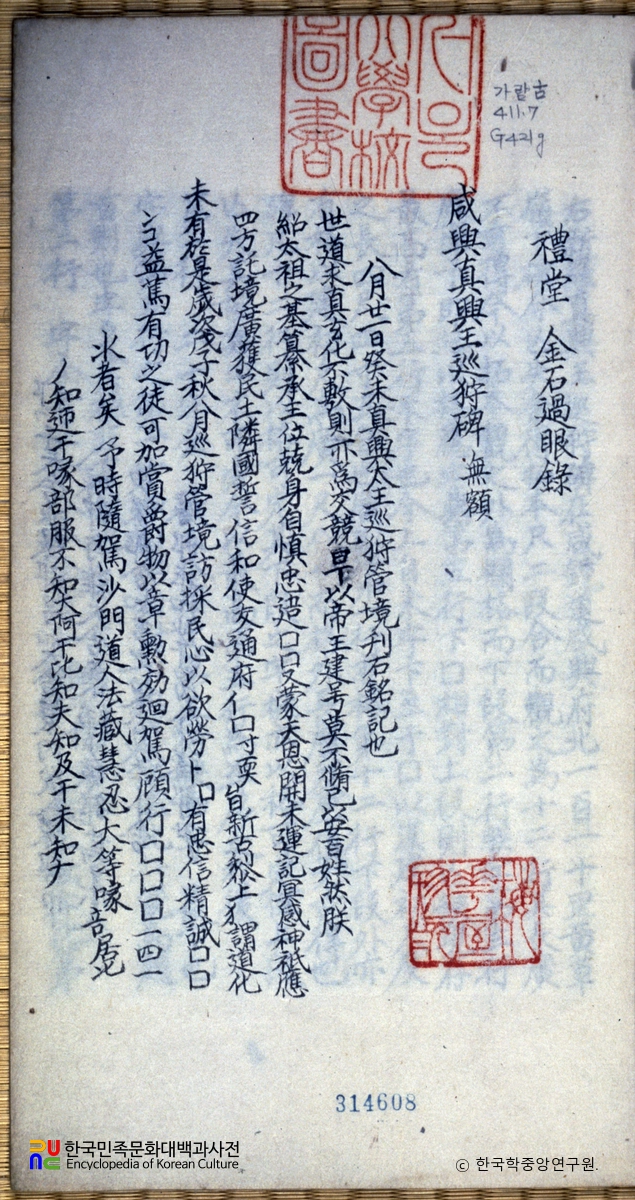 禮堂 金石過眼錄
咸興真興王巡狩碑 無額
八月廿一日癸未真興太王巡狩管境刊石銘記也
世道未真玄化不敷則亦為交競 以帝王建号莫不脩己以安百姓然朕
紹太祖之基纂承王位兢身自慎恐違口口又蒙天恩開未運記冥感神祇應
四方託境廣獲民土隣國誓信和使交通府 口寸 新古黎 猶謂道化
未有於是歲次戊子秋八月巡狩管境訪採民心以欲勞口有忠信精誠口口
益篤有功之徒可加賞爵物以章勳効廻駕顧行口口口一四一
者矣 于時隨駕沙門道人法藏慧忍大等喙 居
知迊干喙部服不知大阿干比知夫知及干未知
大學校
圖書
가람古
411.7
G421g
314608
한국민족문화대백과사전
Encyclopedia of Korean Culture
© 한국학중앙연구원.